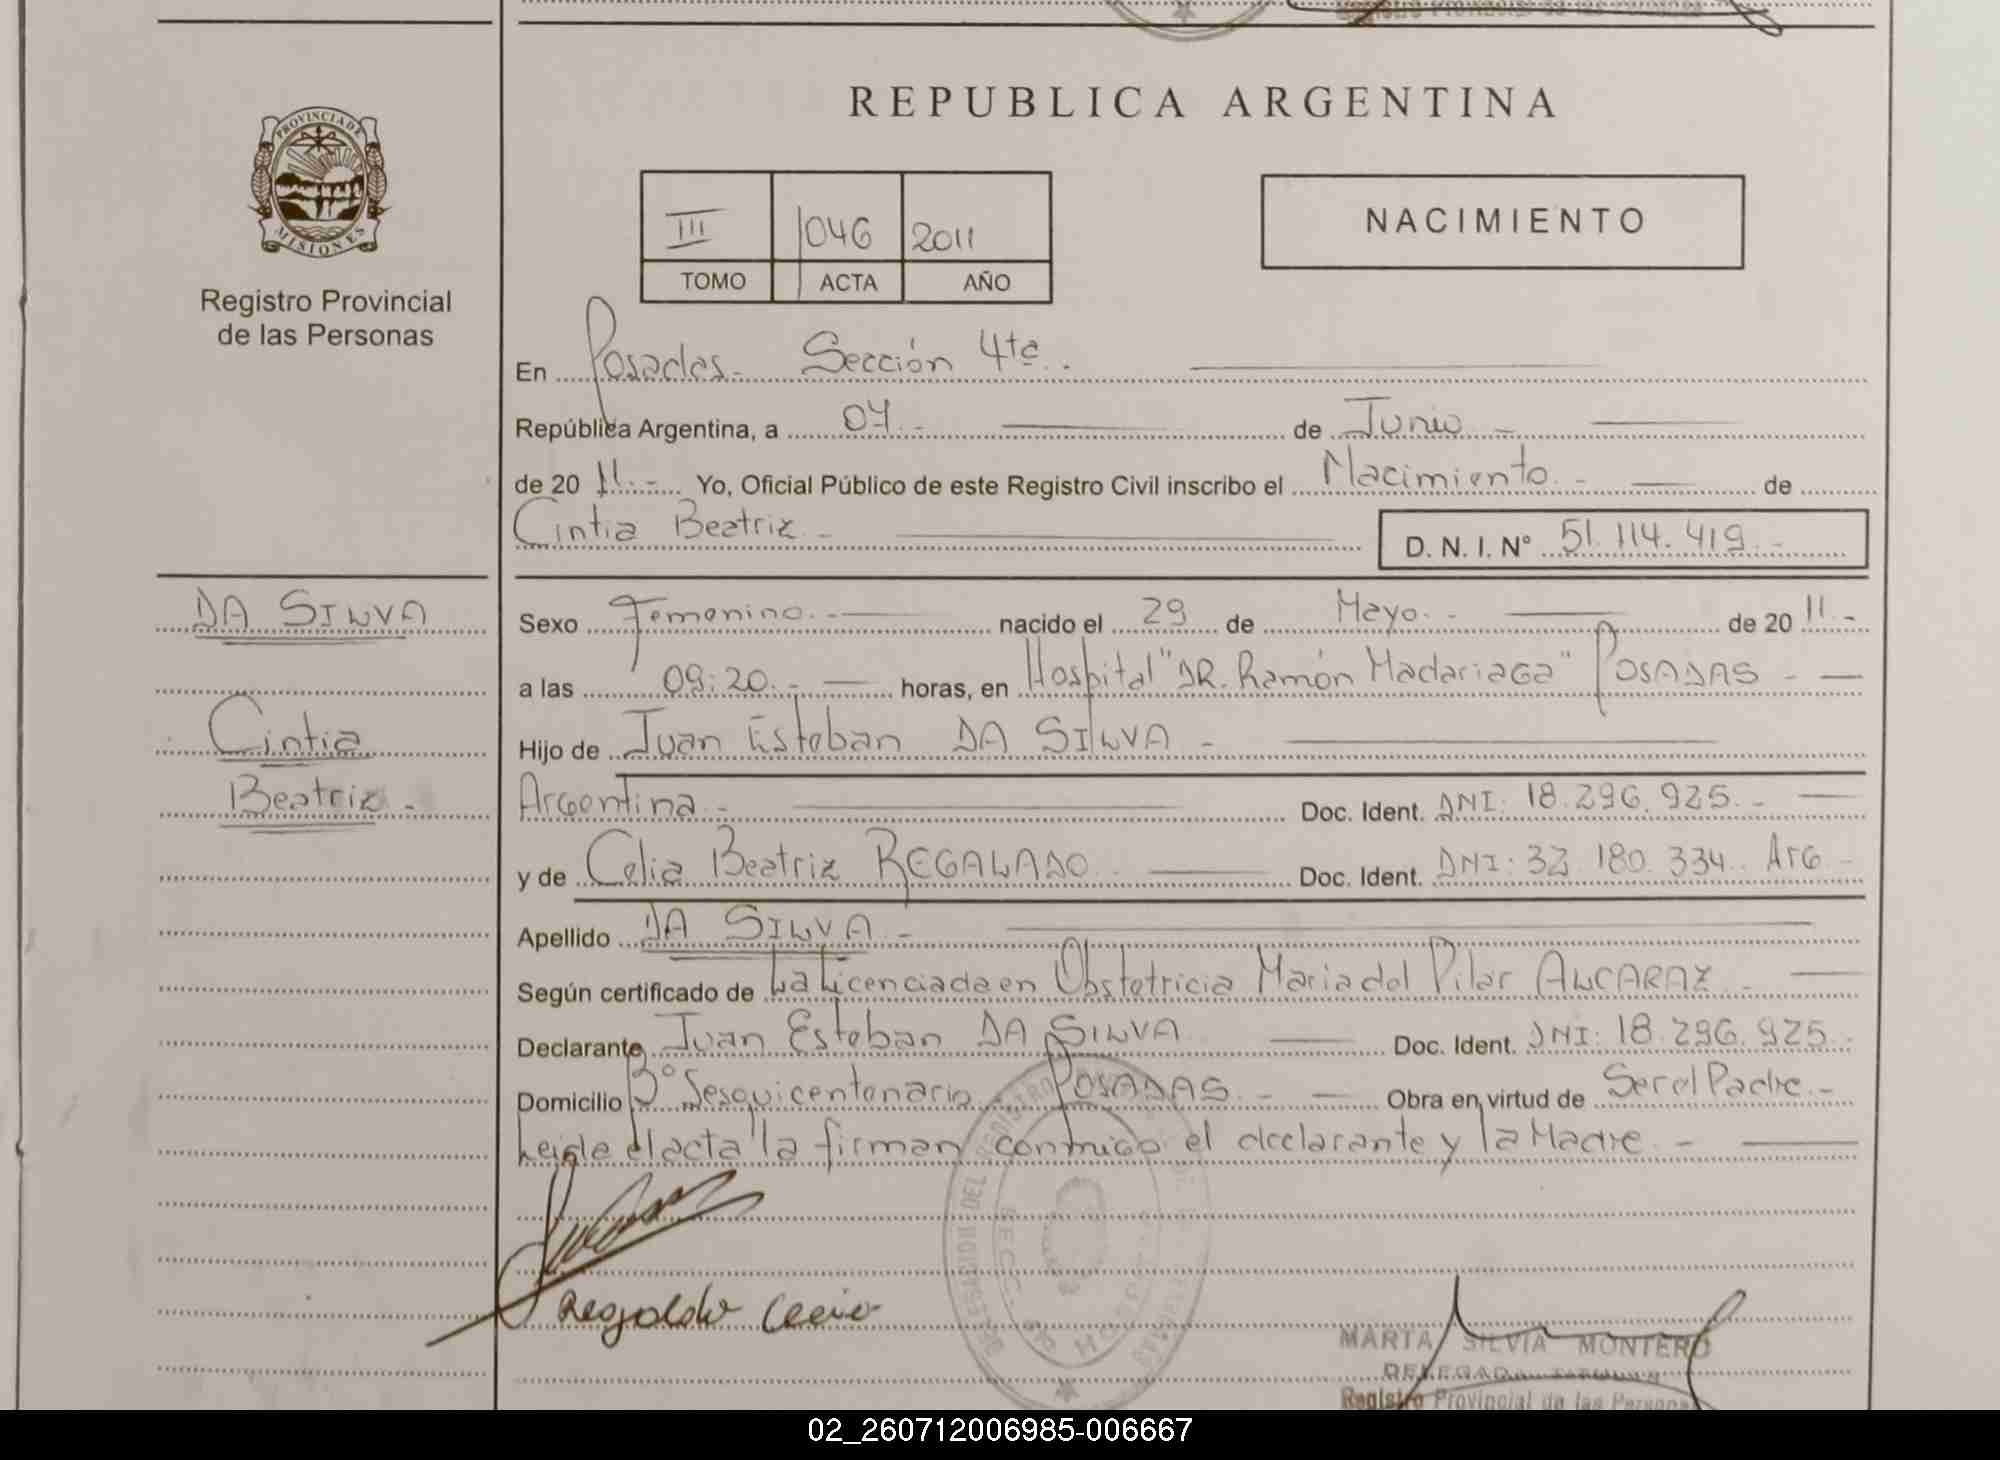 REPUBLICA ARGENTINA
PROVINCIA DE
MISIONES
Registro Provincial
de las Personas
III 1046 2011
TOMO ACTA AÑO
NACIMIENTO
En Posadas - Sección 4ta.
República Argentina, a 07.- de Junio.-
de 20 11.- Yo, Oficial Público de este Registro Civil inscribo el Nacimiento.- de
Cintia Beatriz.- D. N. I. Nº 51.114.419.-
DA SILVA
Cintia
Beatriz.-
Sexo Femenino.- nacido el 29 de Mayo.- de 20 11.-
a las 09:20.- horas, en Hospital "DR. Ramón Madariaga" POSADAS -
Hijo de Juan Esteban DA SILVA -
Argentina.- Doc. Ident. DNI: 18.296.925.-
y de Celia Beatriz REGALADO. Doc. Ident. DNI: 33.180.334. Arg -
Apellido DA SILVA.-
Según certificado de La Licenciada en Obstetricia Maria del Pilar ALCARAZ.-
Declarante Juan Esteban DA SILVA Doc. Ident. DNI: 18.296.925.
Domicilio Bº Sesquicentenario POSADAS.- Obra en virtud de Ser el Padre.-
Leida el acta la firman conmigo el declarante y la Madre.-
Regalado Celia
DELEGACION DEL REGISTRO
SECC.
MARTA SILVIA MONTERO
DELEGADA TITULAR
Registro Provincial de las Personas
02_260712006985-006667